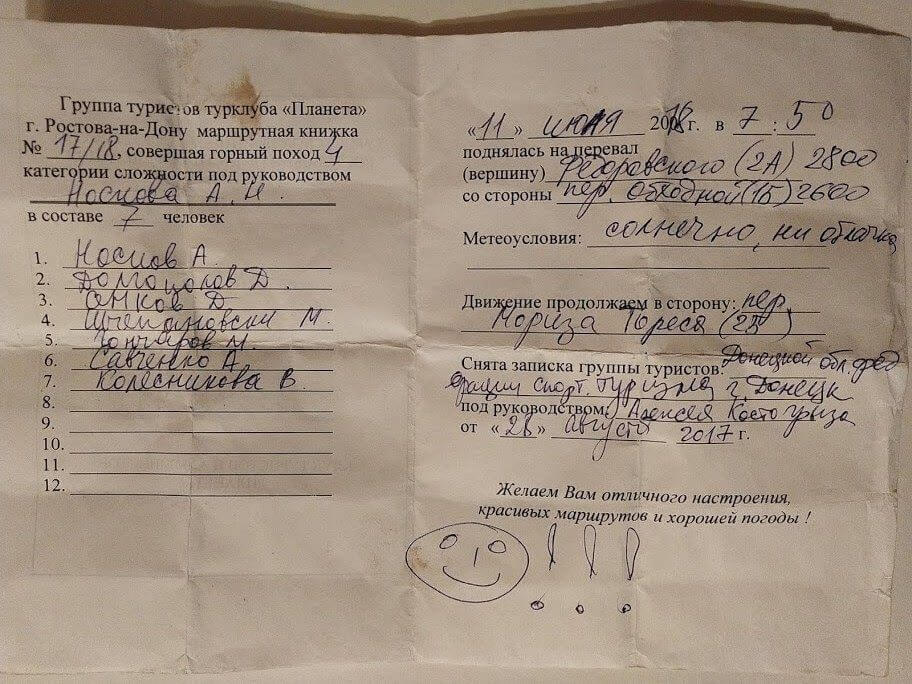 Группа туристов турклуба «Планета»
г. Ростова-на-Дону маршрутная книжка
№ 17/18, совершая горный поход 4
категории сложности под руководством
Носкова А. И.
в составе 7 человек
1. Носков А.
2. Долгополов Д.
3. Д.
4. М.
5. Гончаров М.
6. Савченко А.
7. Колесникова В.
8.
9.
10.
11.
12.
«11» июня 2018г. в 7 : 50
поднялась на перевал
(вершину) Федоровского (2А) 2800
со стороны пер. Обходной (1Б) 2600
Метеоусловия: солнечно, ни облачка
Движение продолжаем в сторону: пер.
Мориза Тореса
Снята записка группы туристов: Донецкой обл. фед
ерации спорт. туризма г. Донецк
под руководством: Алексея Костогрыза
от «28» августа 2017 г.
Желаем Вам отличного настроения,
красивых маршрутов и хорошей погоды !
! ! !